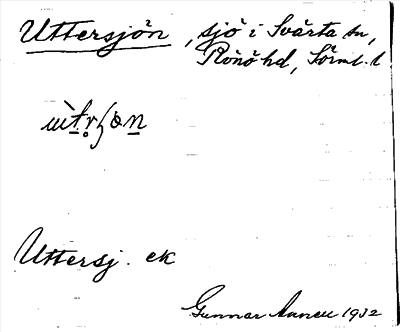 Uttersjön, sjö i Svärta sn,
Rönö hd, Sörml. l
Uttersj. ek
Gunnar 1932